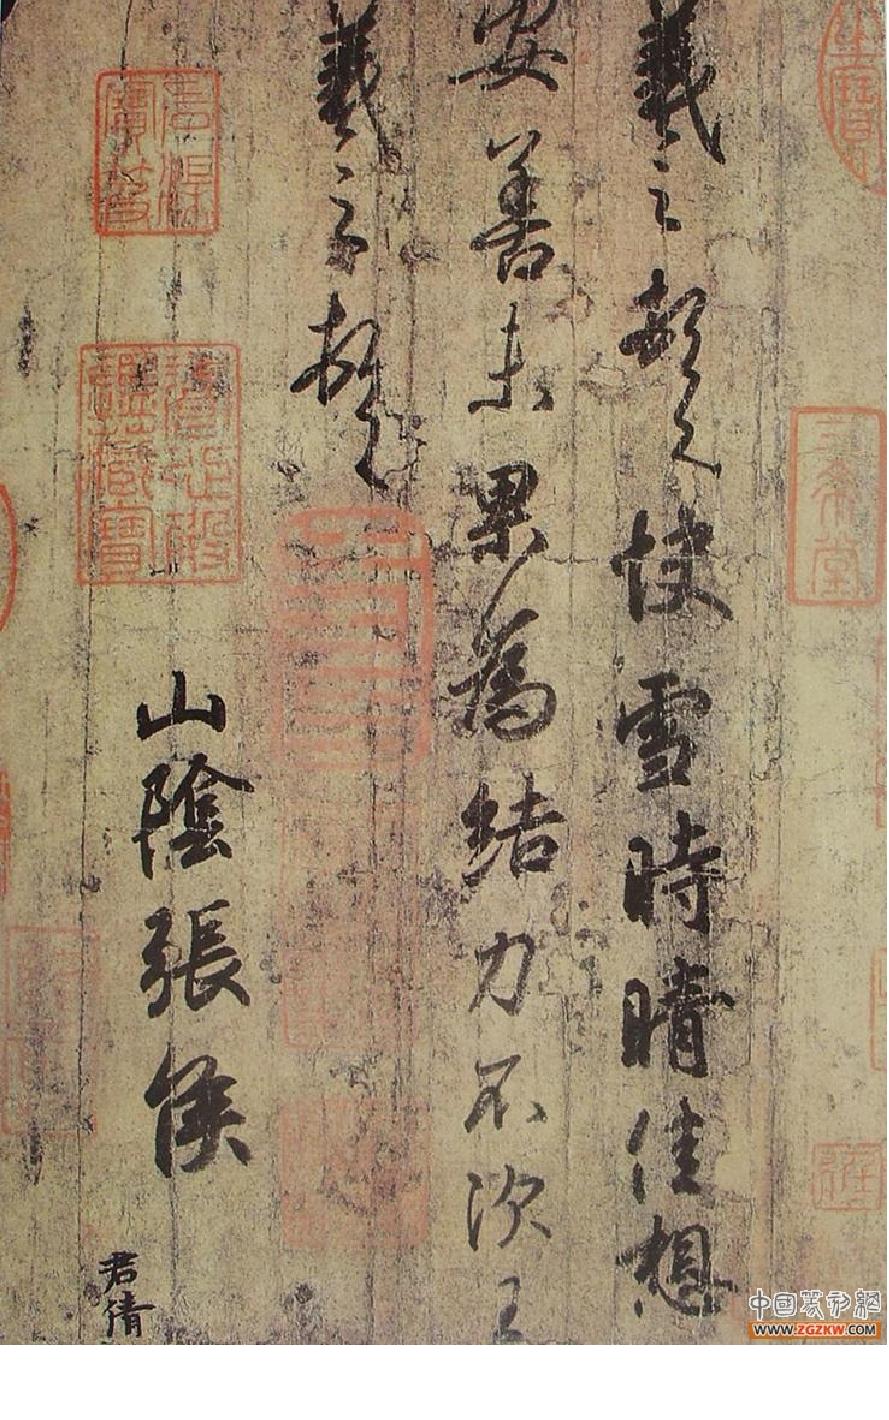 羲之頓首快雪時晴佳想
安善未果為結力不次王
羲之頓首
山陰張侯
君倩
三希堂
中国篆刻網
WWW.ZGZKW.COM